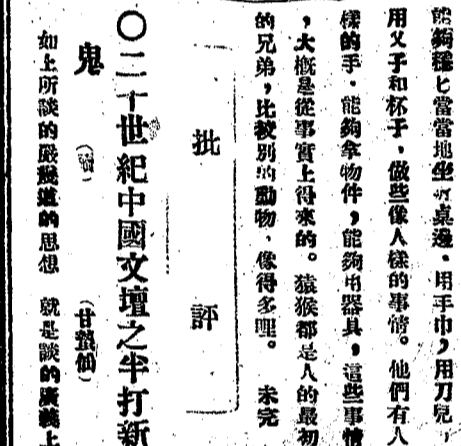 能夠穩匕當當地坐在桌邊。用手巾，用刀兒，
用叉子和杯子，做些像人樣的事情。他們有人
樣的手。能夠拿物件，能夠用器具，這些事情
，大概是從事實上得來的。猿猴都是人的最初
的兄弟，比較別的動物，像得多哩。 未完
批 評
〇二十世紀中國文壇之半打新
鬼 （續） （甘蟄仙）
如上所談的嚴幾道的思想 就是談的廣義上